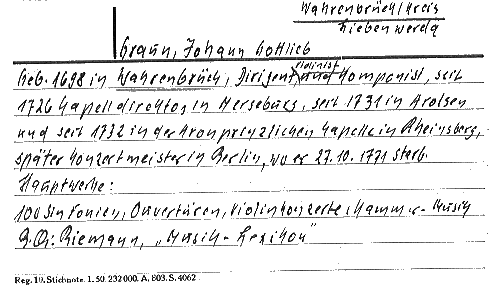 Wahrenbrück/Kreis
Liebenwerda
Graun, Johann Gottlieb
Geb. 1698 in Wahrenbrück, Dirigent, Violinist und Komponist, seit
1726 Kapelldirektor in Merseburg, seit 1731 in Arolsen
und seit 1732 in der Kronprinzlichen Kapelle in Rheinsberg,
später Konzertmeister in Berlin, wo er 27.10.1771 starb.
Hauptwerke:
100 Sinfonien, Ouvertüren, Violinkonzerte, Kammer-Musik
Riemann, „Musik-Lexikon"
Reg. 19. Stichnote. 1. 50. 232000. A. 803. S. 4062